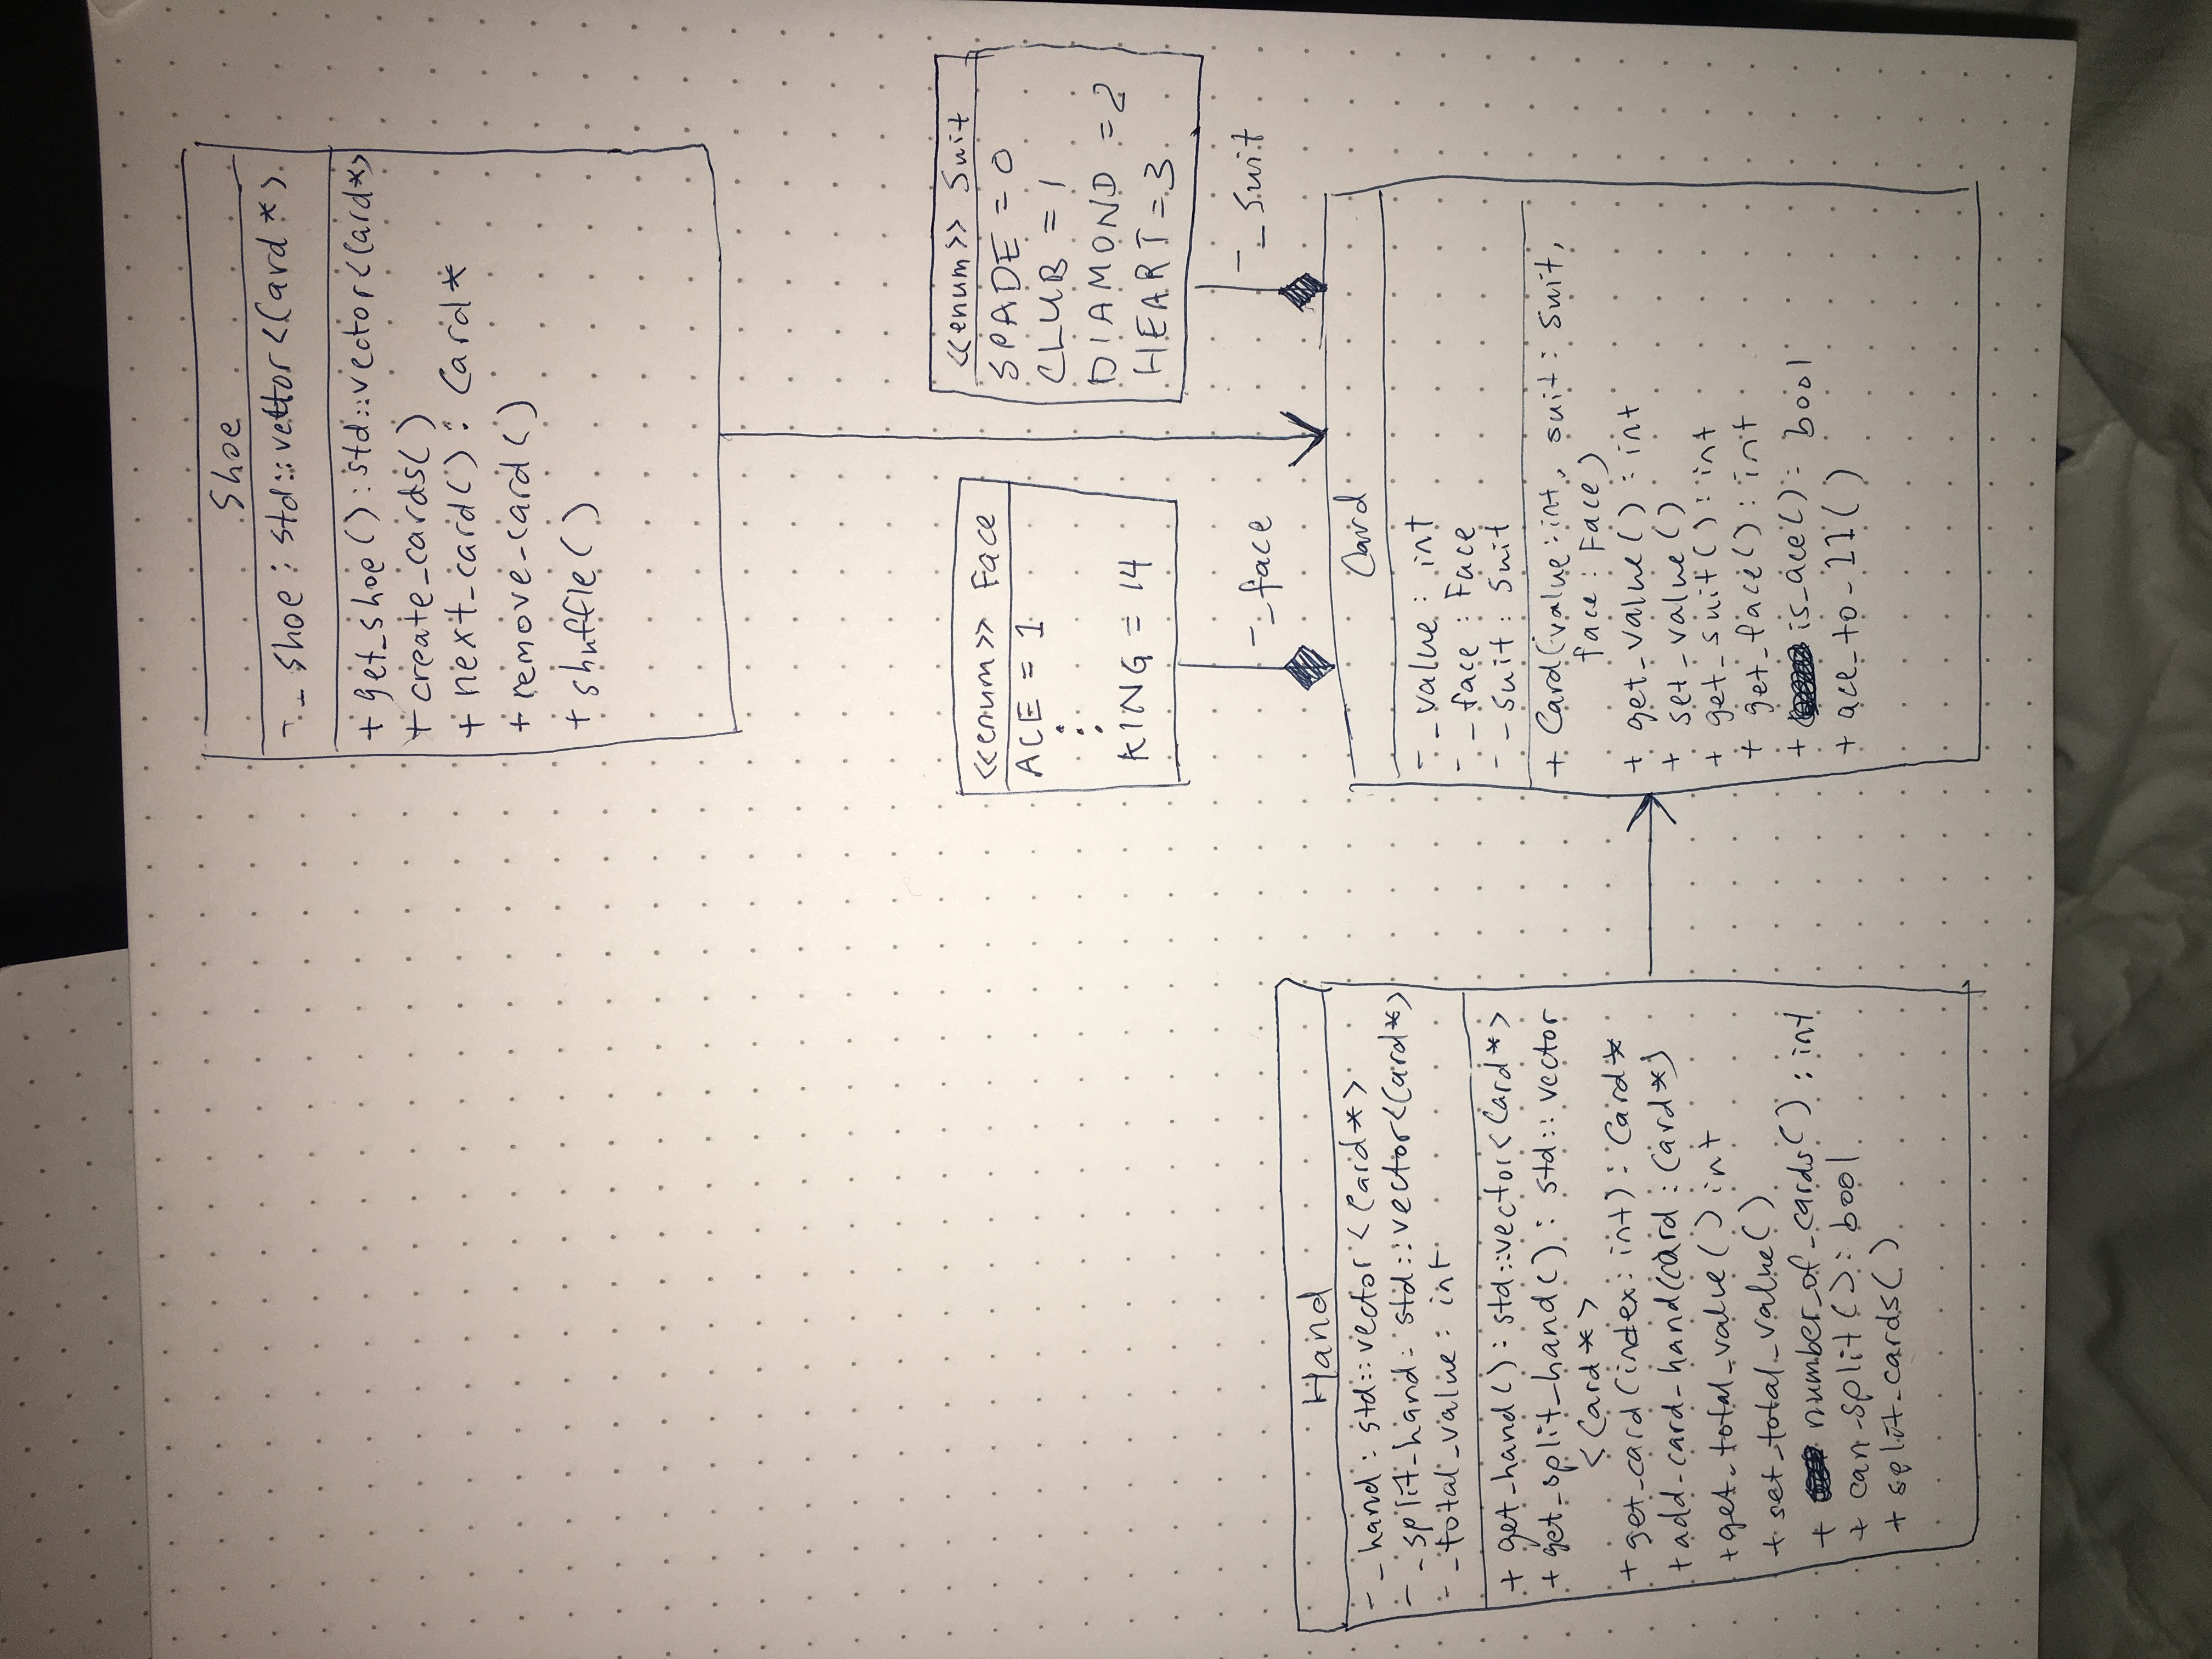 Shoe
- _shoe : std::vector<Card *>
+ get_shoe() : std::vector<Card*>
+ create_cards()
+ next_card() : Card*
+ remove_card()
+ shuffle()
<<enum>> Face
ACE = 1
KING = 14
<<enum>> Suit
SPADE = 0
CLUB = 1
DIAMOND = 2
HEART = 3
- _face
- _suit
Hand
- _hand : std::vector<Card*>
- _split_hand : std::vector<Card*>
- _total_value : int
+ get_hand() : std::vector<Card*>
+ get_split_hand() : std::vector
<Card*>
+ get_card(index: int) : Card*
+ add_card_hand(card : Card*)
+ get_total_value() int
+ set_total_value()
+ number_of_cards() : int
+ can_split() : bool
+ split_cards()
Card
- _value : int
- _face : Face
- _suit : Suit
+ Card(value: int, suit : Suit,
face : Face)
+ get_value() : int
+ set_value()
+ get_suit() : int
+ get_face() : int
+ is_ace() : bool
+ ace_to_11()